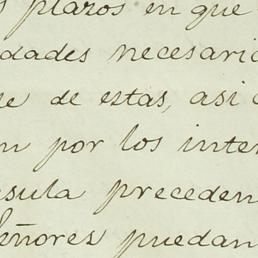 s plazos en que
dades necesario
e de estas, asi c
n por los inter
sula preceden
Señores puedan